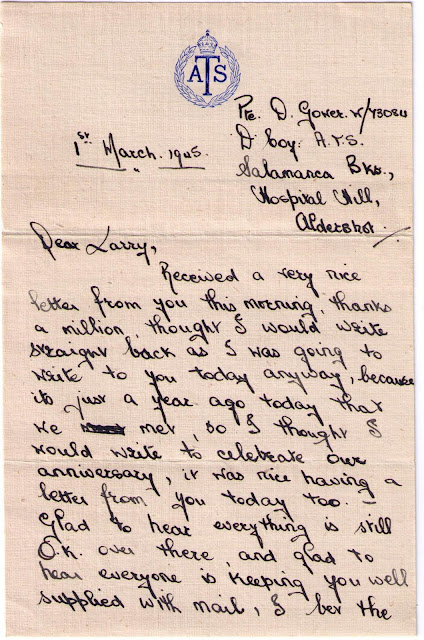 ATS
Pte. D. Gower. W/73084
D Coy. A.T.S.
1st March. 1945.
Salamanca Bks.,
Hospital Hill,
Aldershot.
Dear Larry,
Received a very nice
letter from you this morning, thanks
a million, thought I would write
straight back as I was going to
write to you today anyway, because
its just a year ago today that
we met, so I thought I
would write to celebrate our
anniversary, it was nice having a
letter from you today too. –
Glad to hear everything is still
O.K. over there, and glad to
hear everyone is keeping you well
supplied with mail, I bet the